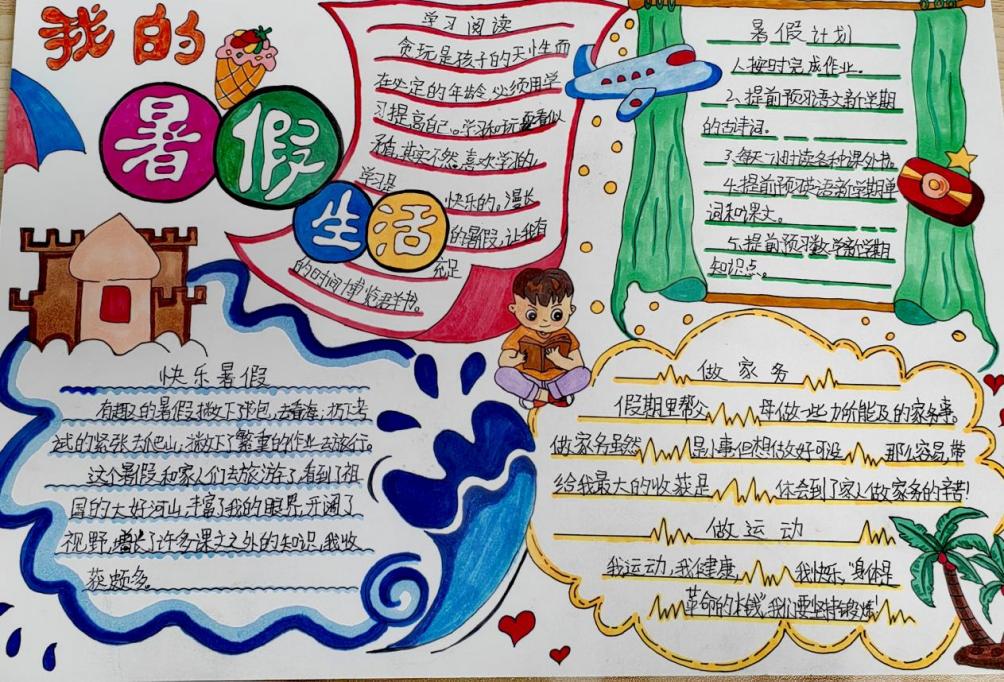 我的
暑假
生活
学习阅读
贪玩是孩子的天性而
在必定的年龄,必须用学
习提高自己。学习和玩耍看似
矛盾,其实不然,喜欢学习的,
学习是
快乐的。漫长
的暑假,让我有
充足
的时间博览群书。
暑假计划
1.按时完成作业。
2、提前预习语文新学期
的古诗词。
3.每天一小时读各种课外书。
4.提前预习英语新学期单
词和课文。
5.提前预习数学新学期
知识点。
快乐暑假
有趣的暑假,放下书包,去看海,抛下考
试的紧张去爬山,放下了繁重的作业去旅行。
这个暑假和家人们去旅游了,看到了祖
国的大好河山,丰富了我的眼界,开阔了
视野,增长了许多课文之外的知识,我收
获颇多。
做家务
假期里帮父母做一些力所能及的家务事。
做家务虽然是小事但想做好可没那么容易,带
给我最大的收获是体会到了家人做家务的辛苦!
做运动
我运动,我健康,我快乐,"身体是
革命的本钱"我们要坚持锻炼!